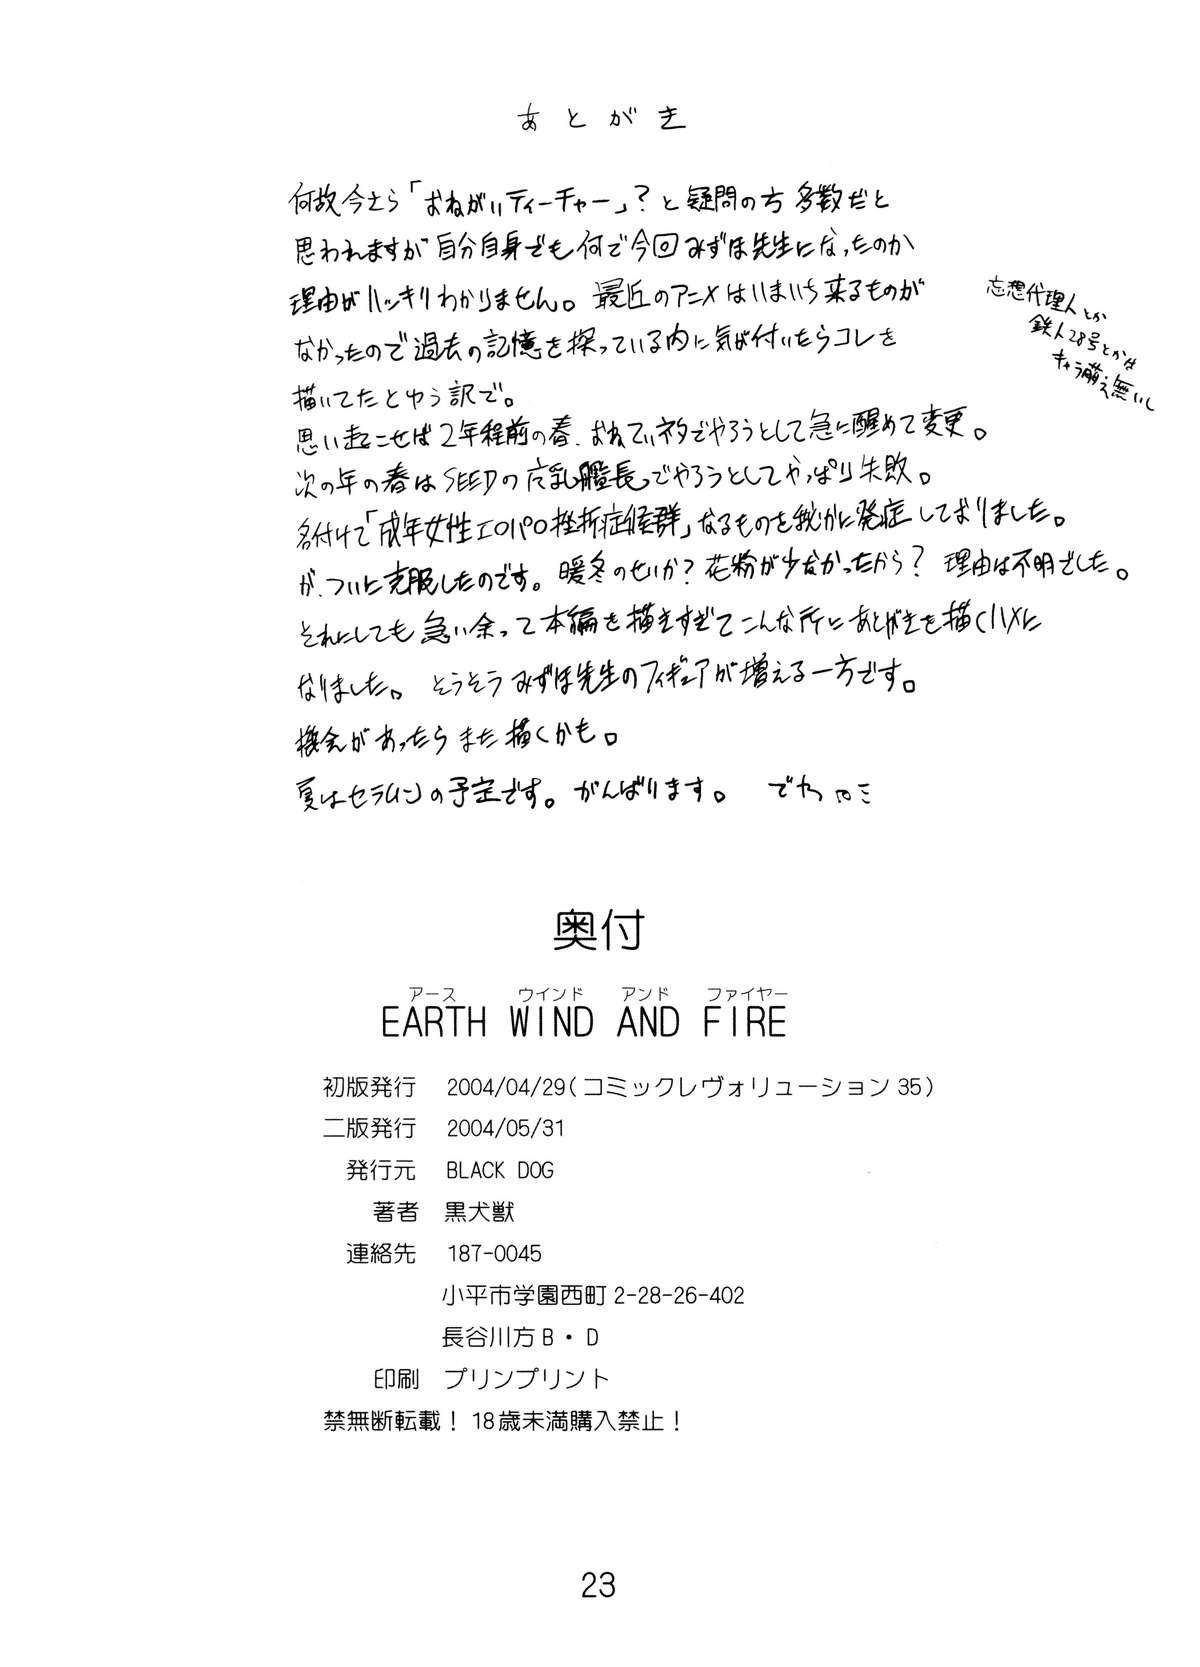 あとがき
何故今さら「おねがいティーチャー」？と疑問の方多数だと
思われますが自分自身でも何で今回みずほ先生になったのか
理由がハッキリわかりません。最近のアニメはいまいち来るものが
なかったので過去の記憶を探っている内に気が付いたらコレを
描いてたとゆう訳で。
妄想代理人とか
鉄人28号とかは
キャラ萌え無いし
思い起こせば2年程前の春、おねてぃネタでやろうとして急に醒めて変更。
次の年の春はSEEDの爆乳艦長でやろうとしてやっぱり失敗。
名付けて「成年女性エロパロ挫折症候群」なるものを密かに発症しておりました。
が、ついに克服したのです。暖冬のせいか？花粉が少なかったから？理由は不明でした。
それにしても急い余って本編を描きすぎてこんな所にあとがきを描くハメに
なりました。そうそうみずほ先生のフィギュアが増える一方です。
機会があったらまた描くかも。
夏はセラムンの予定です。がんばります。 でわ
奥付
アース ウインド アンド ファイヤー
EARTH WIND AND FIRE
初版発行 2004/04/29(コミックレヴォリューション35)
二版発行 2004/05/31
発行元 BLACK DOG
著者 黒犬獣
連絡先 187-0045
小平市学園西町2-28-26-402
長谷川方B・D
印刷 プリンプリント
禁無断転載！18歳未満購入禁止！
23